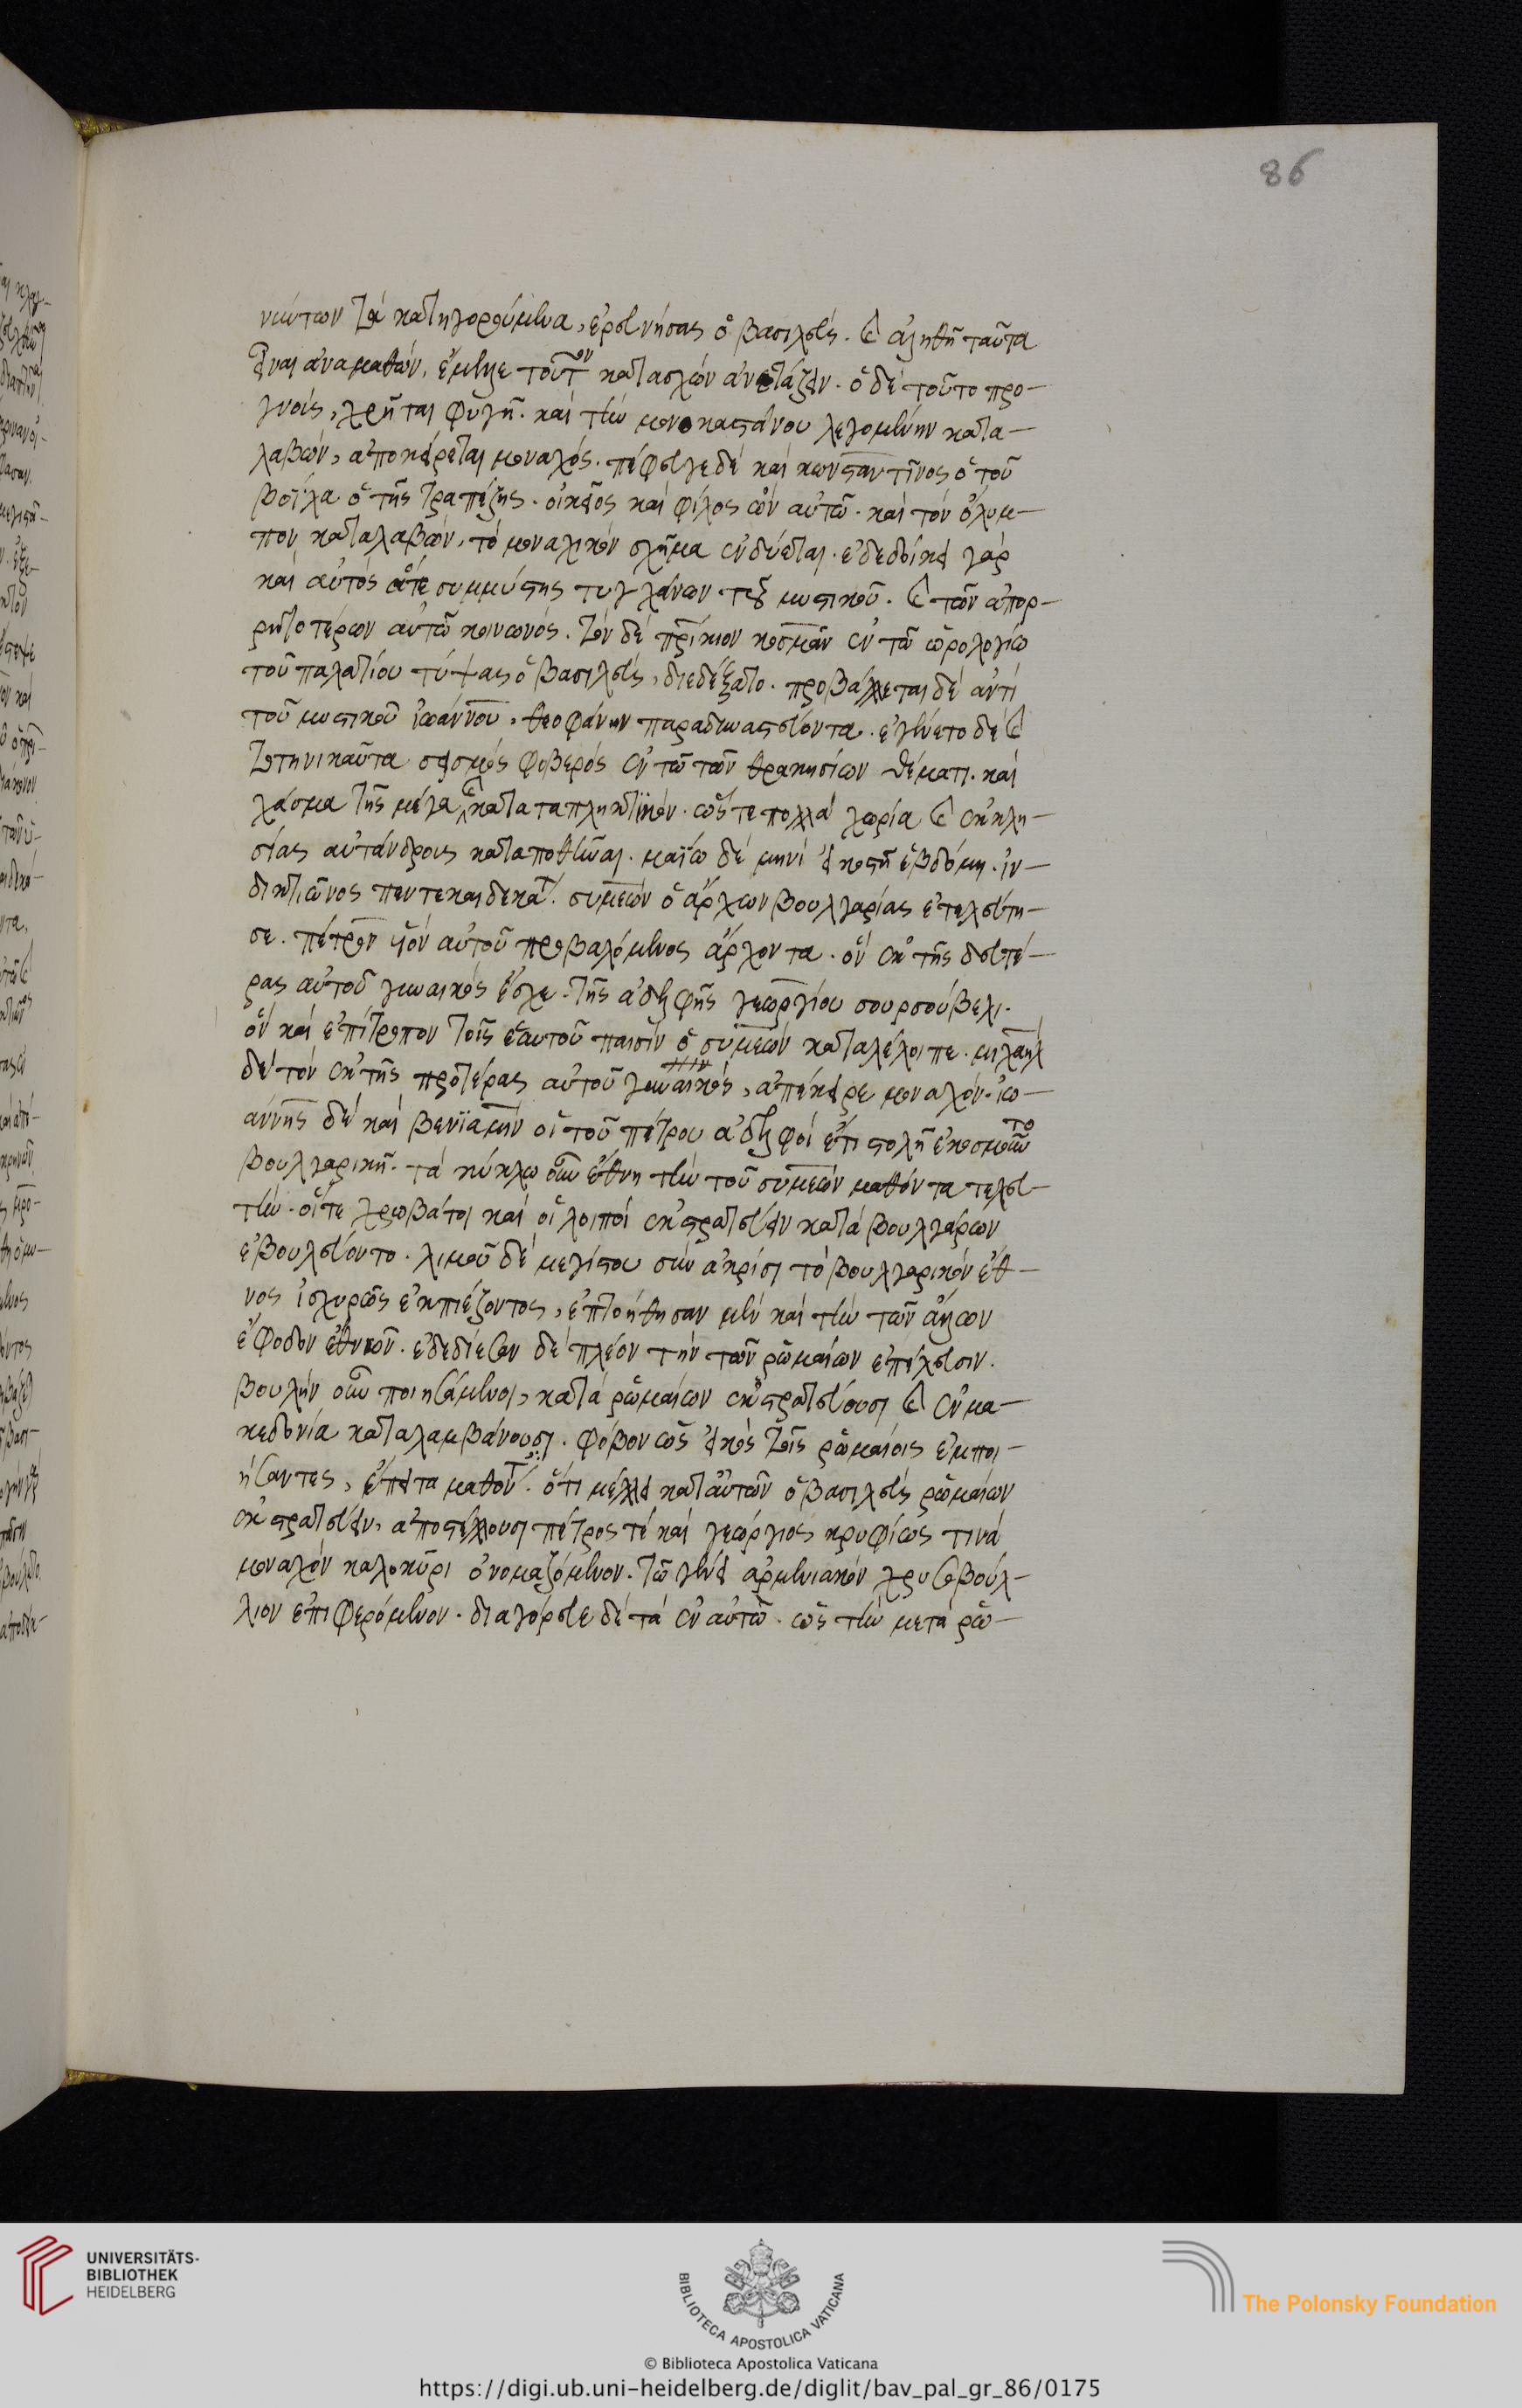 86
νιώτων τὰ κατηγορούμενα, ἐρευνήσας ὁ βασιλεὺς. καὶ ἀληθῆ ταῦτα
εἶναι ἀναμαθών, ἔμελλε τοῦτον κατασχὼν ἀνετάζειν. ὁ δὲ τοῦτο προ-
γνοὺς, χρῆται φυγῆ. καὶ τὴν μονοκαστάνου λεγομένην κατα-
λαβών, ἀποκείρεται μοναχός. πέφευγε δὲ καὶ κωνσταντῖνος ὁ τοῦ
βοΐλα ὁ τῆς τραπέζης. οἰκεῖος καὶ φίλος ὢν αὐτῶ. καὶ τὸν ὄλυμ-
πον καταλαβὼν, τὸ μοναχικὸν σχῆμα ἐνδύεται. ἐδεδοίκει γὰρ
καὶ αὐτὸς ἅτε συμμύστης τυγχάνων τοῦ μυστικοῦ. καὶ τῶν ἀπορ-
ρητοτέρων αὐτῶ κοινωνός. τὸν δὲ πρίκιον κοσμᾶν ἐν τῶ ὡρολογίω
τοῦ παλατίου τύψας ὁ βασιλεὺς, διεδέξατο. προβάλλεται δὲ ἀντὶ
τοῦ μυστικοῦ ἰωάννου, θεοφάνην παραδυναστεύοντα. ἐγένετο δὲ καὶ
τοτηνικαῦτα σεισμὸς φοβερὸς ἐν τῶ τῶν θρακησίων θέματι. καὶ
χάσμα τῆς μέγα καὶ καταπληκτικόν. ὥστε πολλὰ χωρία καὶ ἐκκλη-
σίας αὐτάνδρους καταποθῆναι. μαΐω δὲ μηνὶ εἰκοστῆ ἑβδόμη. ἰν-
δικτιῶνος πεντεκαιδεκάτ. συμεὼν ὁ ἄρχων βουλγαρίας ἐτελεύτη-
σε. πέτρον υἱὸν αὐτοῦ προβαλόμενος ἄρχοντα. ὃν ἐκ τῆς δευτέ-
ρας αὐτοῦ γυναικὸς ἔσχε. τῆς ἀδελφῆς γεωργίου σουρσούβελι.
ὃν καὶ ἐπίτροπον τοῖς ἑαυτοῦ παισὶν ὁ συμεὼν καταλέλοιπε. μιχαὴλ
δὲ τὸν ἐκ τῆς προτέρας αὐτοῦ γυναικὸς, ἀπέκειρε μοναχόν. ἰω-
άννης δὲ καὶ βενϊαμὴν οἱ τοῦ πέτρου ἀδελφοὶ ἔτι στολῆ ἐκοσμοῦντο
βουλγαρικῆ. τὰ κύκλω οὖν ἔθνη τὴν τοῦ συμεὼν μαθόντα τελευ-
τὴν. οἵτε χρωβάτοι καὶ οἱ λοιποὶ ἐκστρατεύειν κατὰ βουλγάρων
ἐβουλεύοντο. λιμοῦ δὲ μεγίστου σὺν ἀκρίσι τὸ βουλγαρικὸν ἔθ-
νος ἰσχυρῶς ἐκπιέζοντος, ἐπτοήθησαν μὲν καὶ τὴν τῶν ἄλλων
ἔφοδον ἐθνῶν. ἐδεδίεσαν δὲ πλέον τὴν τῶν ῥωμαίων ἐπέλευσιν.
βουλὴν οὖν ποιησάμενοι, κατὰ ῥωμαίων ἐκστρατεύουσι καὶ ἐν μα-
κεδονία καταλαμβάνουσι. φόβον ὡς εἰκὸς τοῖς ῥωμαίοις ἐμποι-
ήσαντες, ἔπειτα μαθόντες. ὅτι μέλλει κατ αὐτῶν ὁ βασιλεὺς ῥωμαίων
ἐκστρατεύειν, ἀποστέλλουσι πέτρος τὲ καὶ γεώργιος κρυφίως τινὰ
μοναχὸν καλοκῦρι ὀνομαζόμενον. τῶ γένει ἀρμενιακὸν χρυσοβούλ-
λιον ἐπιφερόμενον. διαγόρευε δὲ τὰ ἐν αὐτῶ. ὡς τὴν μετὰ ῥω-
UNIVERSITÄTS-
BIBLIOTHEK
HEIDELBERG
BIBLIOTECA APOSTOLICA VATICANA
The Polonsky Foundation
© Biblioteca Apostolica Vaticana
https://digi.ub.uni-heidelberg.de/diglit/bav_pal_gr_86/0175